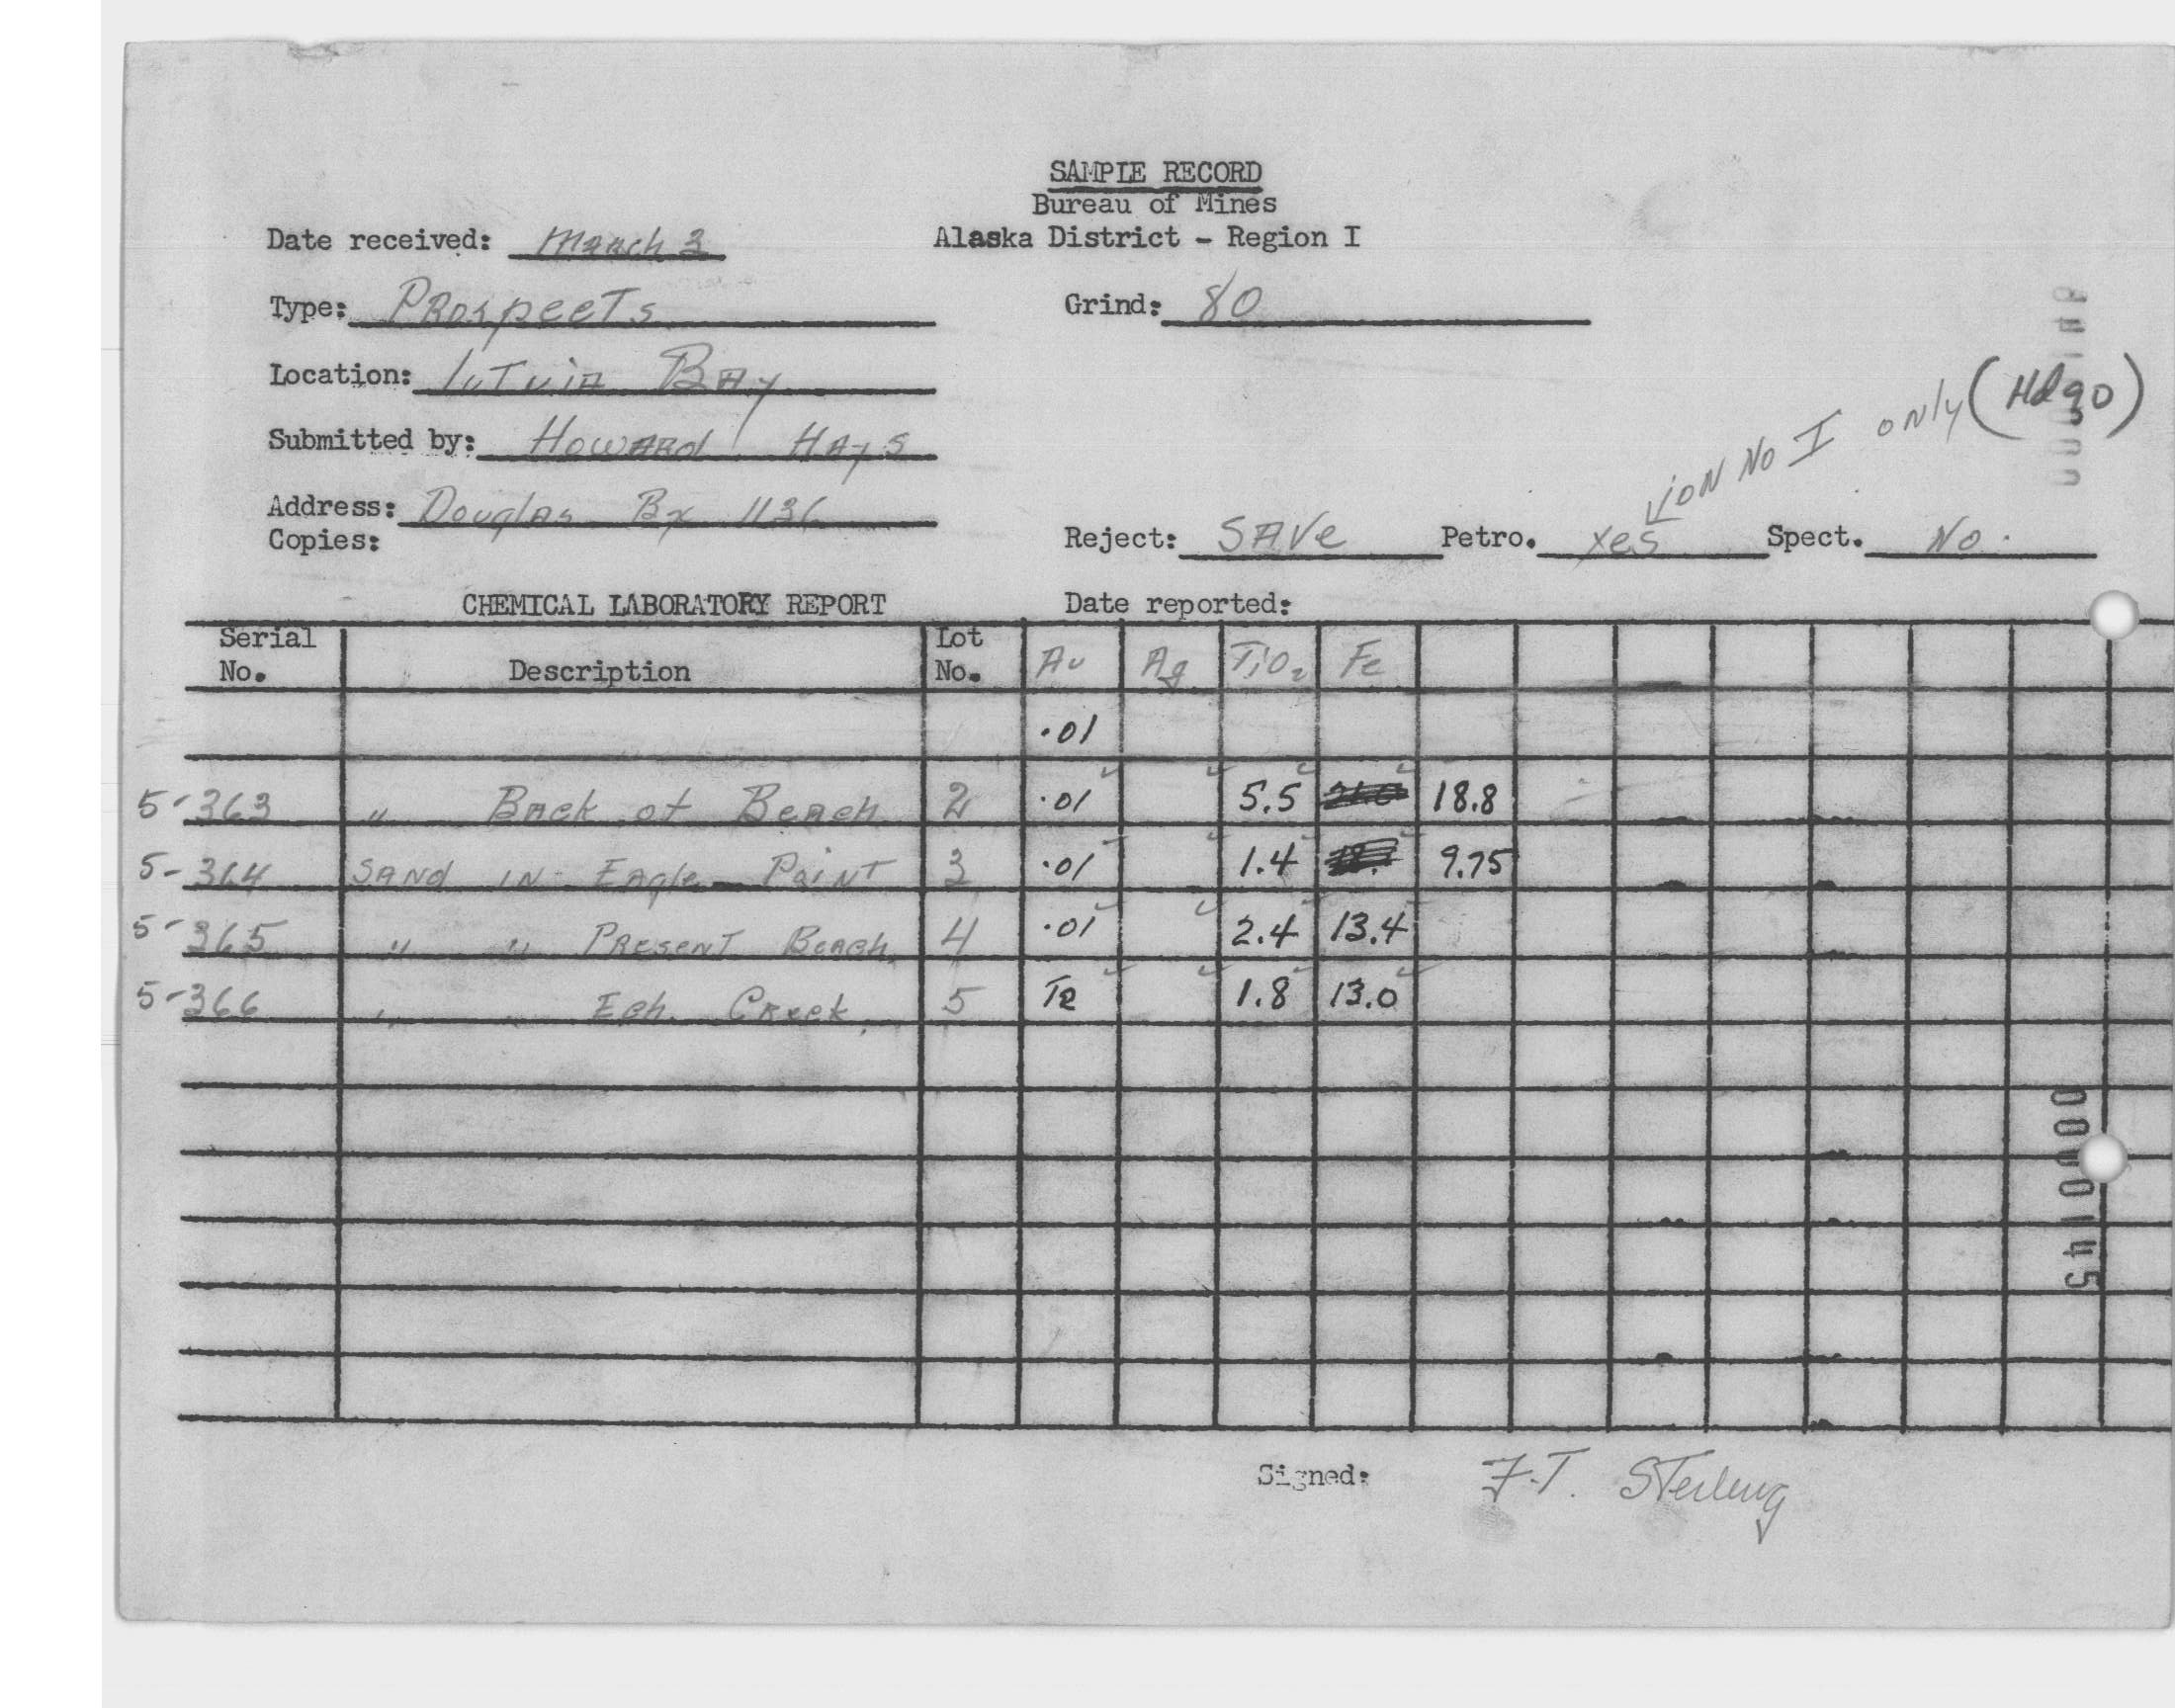 SAMPLE RECORD
Bureau of Mines
Alaska District - Region I
Date received: March 3
Type: Prospects
Grind: 80
Location: LuTuia Bay
Submitted by: Howard Hays
Address: Douglas Bx 1136
Copies:
ON NO I only (Hdqo)
Reject: SAVe Petro. yes Spect. No.
CHEMICAL LABORATORY REPORT Date reported:
Serial No. Description Lot No. Au Ag TiO2 Fe
.01
5-363 " Back of Beach 2 .01 5.5 18.8
5-364 SAND IN Eagle Point 3 .01 1.4 9.75
5-365 " " PRESENT Beach 4 .01 2.4 13.4
5-366 " " Creek 5 TR 1.8 13.0
Signed: F.T. STerling
0000145